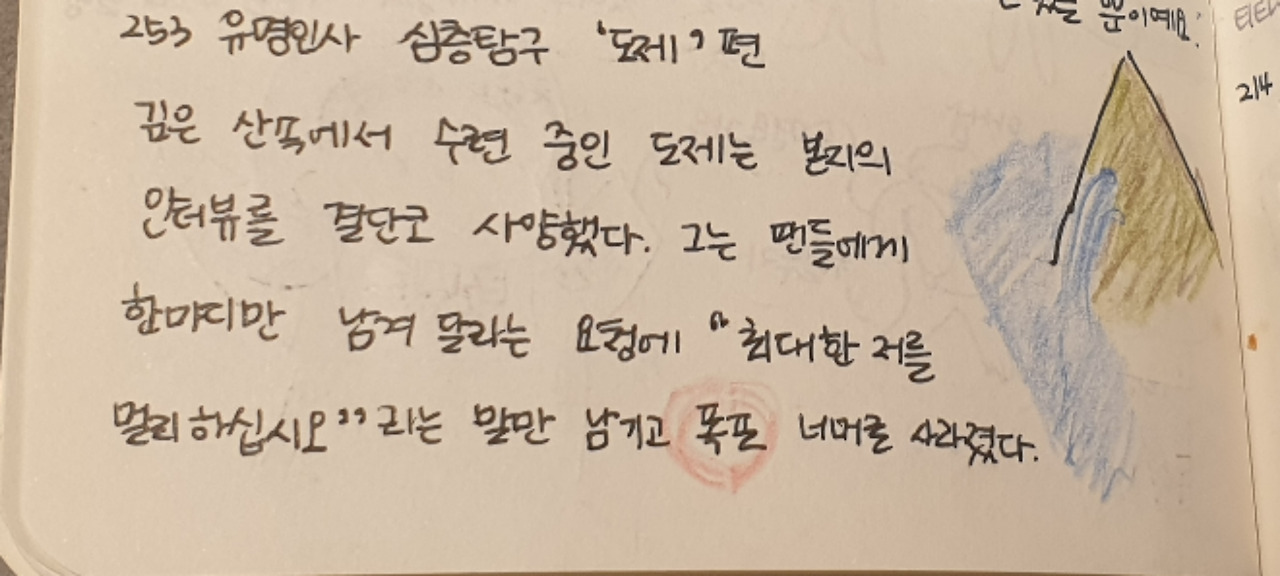 뿐이예요.
253 유명인사 심층탐구 '도제' 편
깊은 산폭에서 수련 중인 도제는 본지의
인터뷰를 결단코 사양했다. 그는 팬들에게
한마디만 남겨 달라는 요청에 "최대한 저를
멀리하십시오"라는 말만 남기고 폭포 너머로 사라졌다.
214